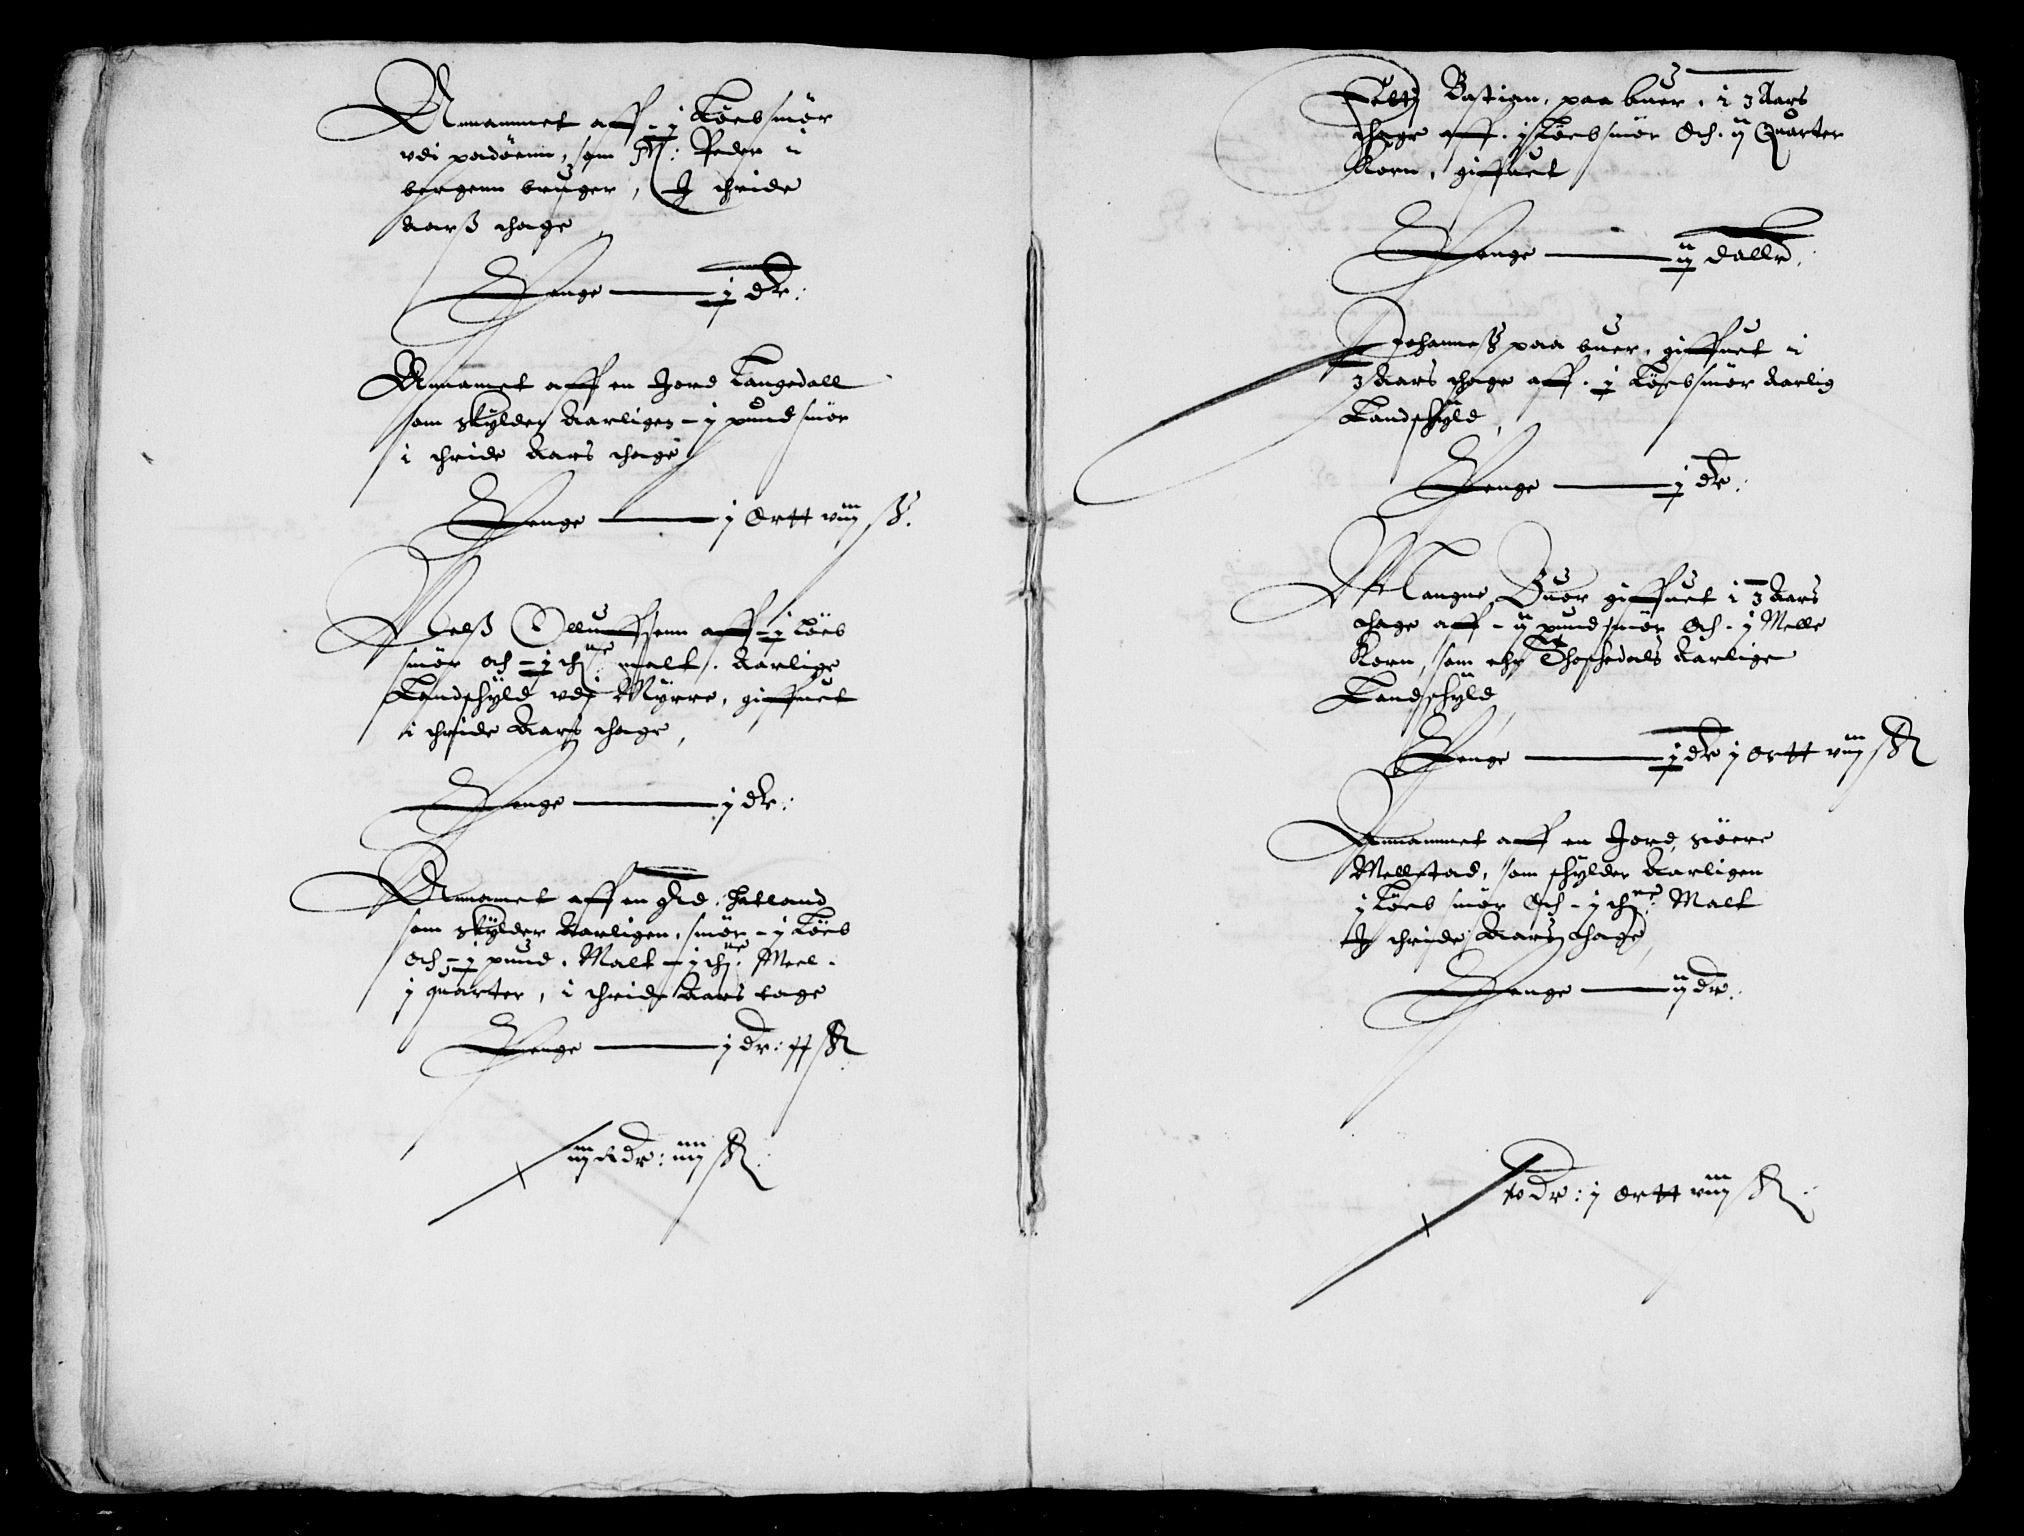 Annammet aff - j Løeb smør
vdi padøenn, som M: Peder i
bergenn bruger, J thride
Aarß thage
Penge ——— j dlr:
Annamet aff en Jord Langedall
som skylder Aarligen - j pund smør
i thride Aars thage
Penge ——— j Ortt viij ß.
Nelß Olluffsenn aff - j Løeb
smør och - j th: malt. Aarlige
Landschyld vdj Myrre, giffuet
i thride Aars thage,
Penge ——— j dlr:
Annamet aff en grd. Hatland
som skylder Aarligen, smør - j Løeb
och - j pund. Malt - j th: Meel -
j quarter, i thride Aars tage
Penge ——— j dlr: ß
iiij dlr: iiij ß
Bastian, paa buer, i 3 Aars
thage aff. j Løeb smør Och. ij Quarter
Korn, giffuet
Penge ——— ij daller.
Johanneß paa buer, giffuet i
3 Aars thage aff. j Løeb smør Aarlig
Landschyld,
Penge ——— j dlr:
Mangne Buer giffuet i 3 Aars
thage aff - ij pund smør Och - j Melle
Korn, som ehr Thoschedals Aarlige
Landschyld,
Penge ——— j dlr j ortt viij ß
Annammet aff en Jord, siøere
Mellstad, som schylder Aarligen
j Løeb smør Och - j th: Malt
J thride Aars thage,
Penge ——— ij dlr.
dlr: j Ortt viij ß